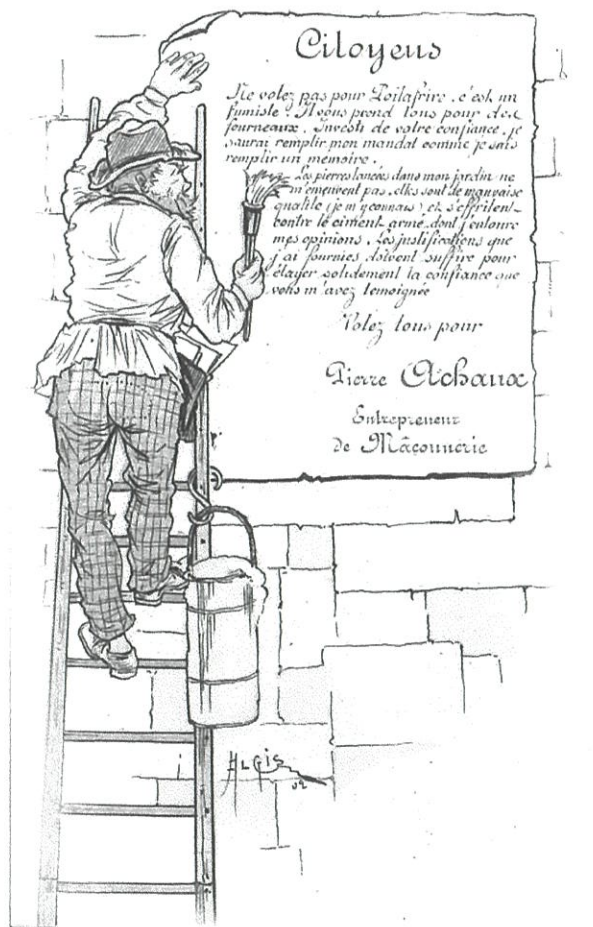 Citoyens
Ne votez pas pour Poilafrire, c'est un
fumiste ! Il vous prend tous pour des
fourneaux. Investi de votre confiance, je
saurai remplir mon mandat comme je sais
remplir un memoire.
Les pierres lancées dans mon jardin ne
m'émeuvent pas, elles sont de mauvaise
qualité (je m'y connais) et s'effritent
contre le ciment armé dont j'entoure
mes opinions. Les justifications que
j'ai fournies doivent suffire pour
étayer solidement la confiance que
vous m'avez temoignée
Votez tous pour
Pierre Achaux
Entrepreneur
de Mâçonnerie
ALGIS